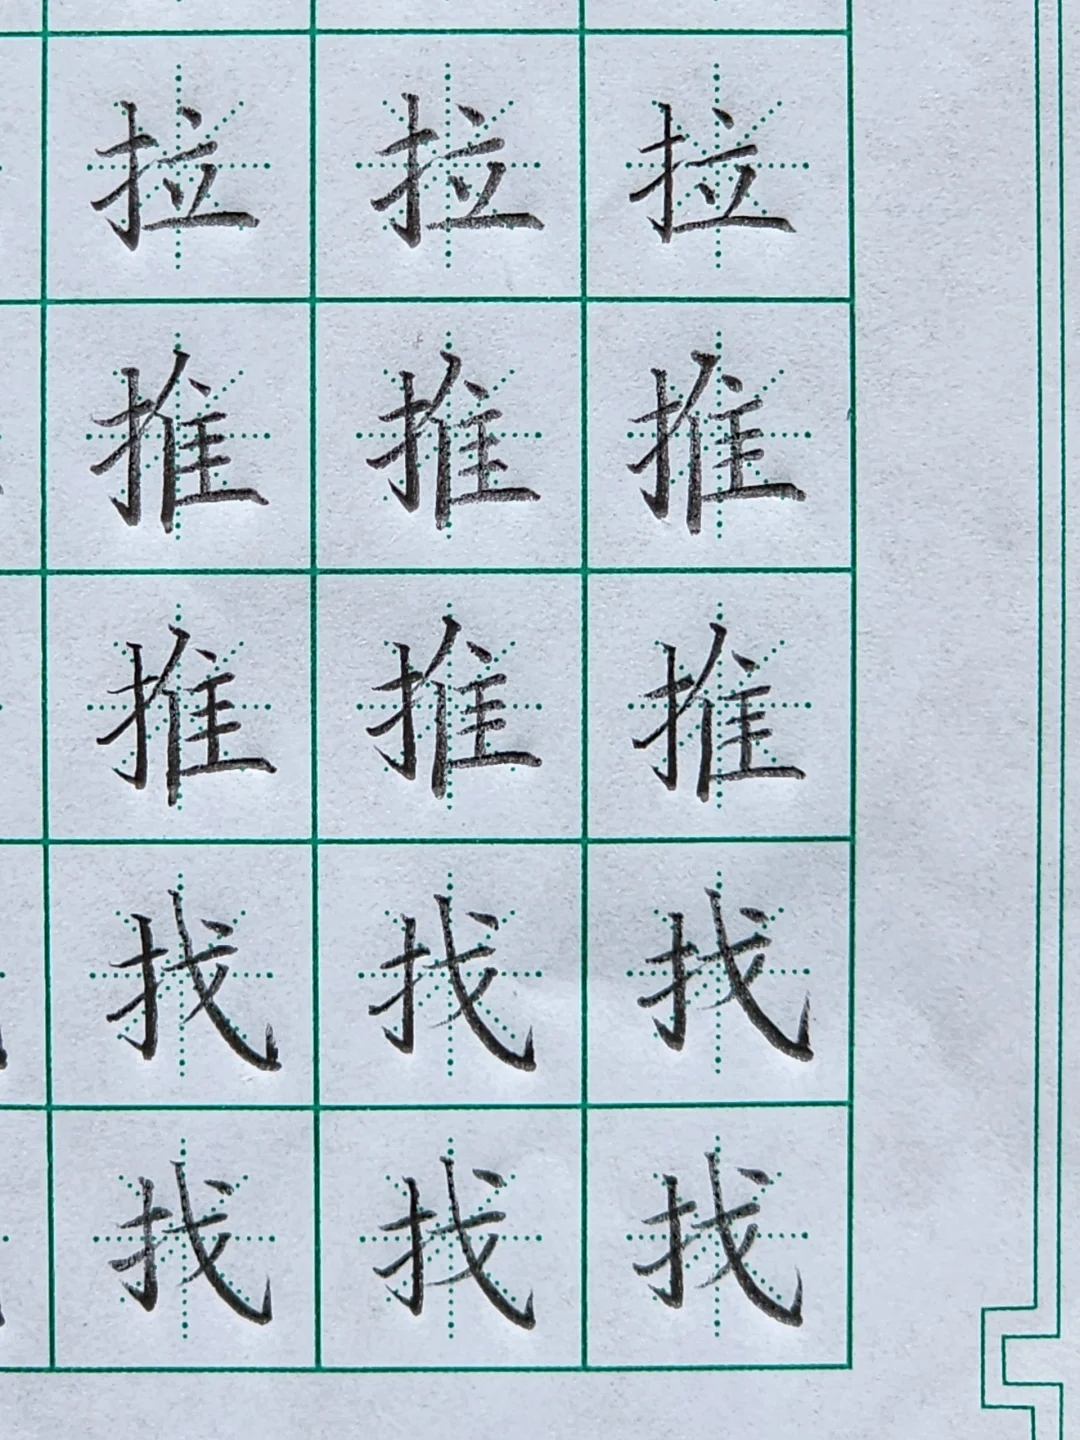 拉拉拉
推推推
推推推
找找找
找找找